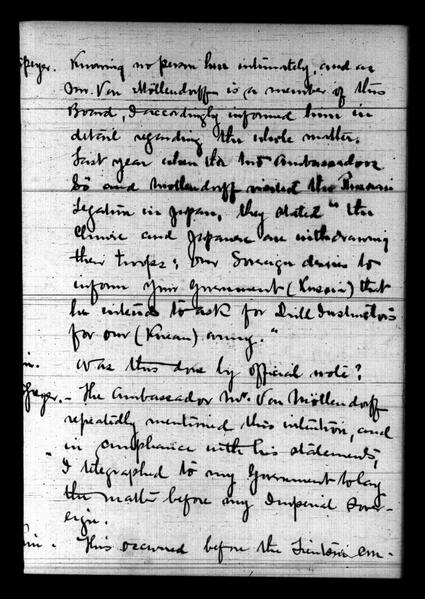 speyer. Knowing no person here intimately, and as
Mr. Von Möllendorff is a member of this
Board, I accordingly informed him in
detail regarding the whole matter.
Last year when the two Ambassadors
So and Möllendorff visited the Russian
Legation in Japan, they stated "the
Chinese and Japanese are withdrawing
their troops; our Sovereign desires to
inform your Government (Russia) that
he intends to ask for Drill Instructors
for our (Korean) army."
Was this done by official note?
speyer. - The Ambassador Mr. Von Möllendorff
repeatedly mentioned this intention, and
in compliance with his statements,
I telegraphed to my Government to lay
the matter before my Imperial Sover-
eign.
This occurred before the Tientsin em-